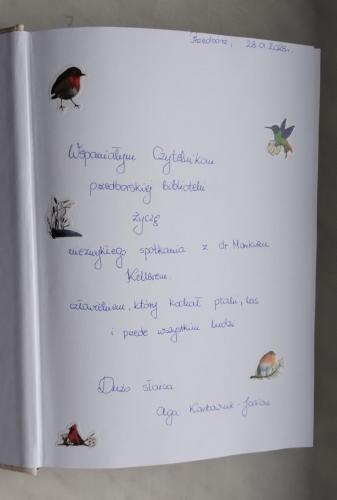 Przedbórz, 28.01.2025r.
Wspaniałym Czytelnikom
przedborskiej biblioteki
życzę
niezwykłego spotkania z dr Markiem
Kellerem.
człowiekiem, który kochał ptaki, las
i przede wszystkim ludzi
Dużo słońca
Aga